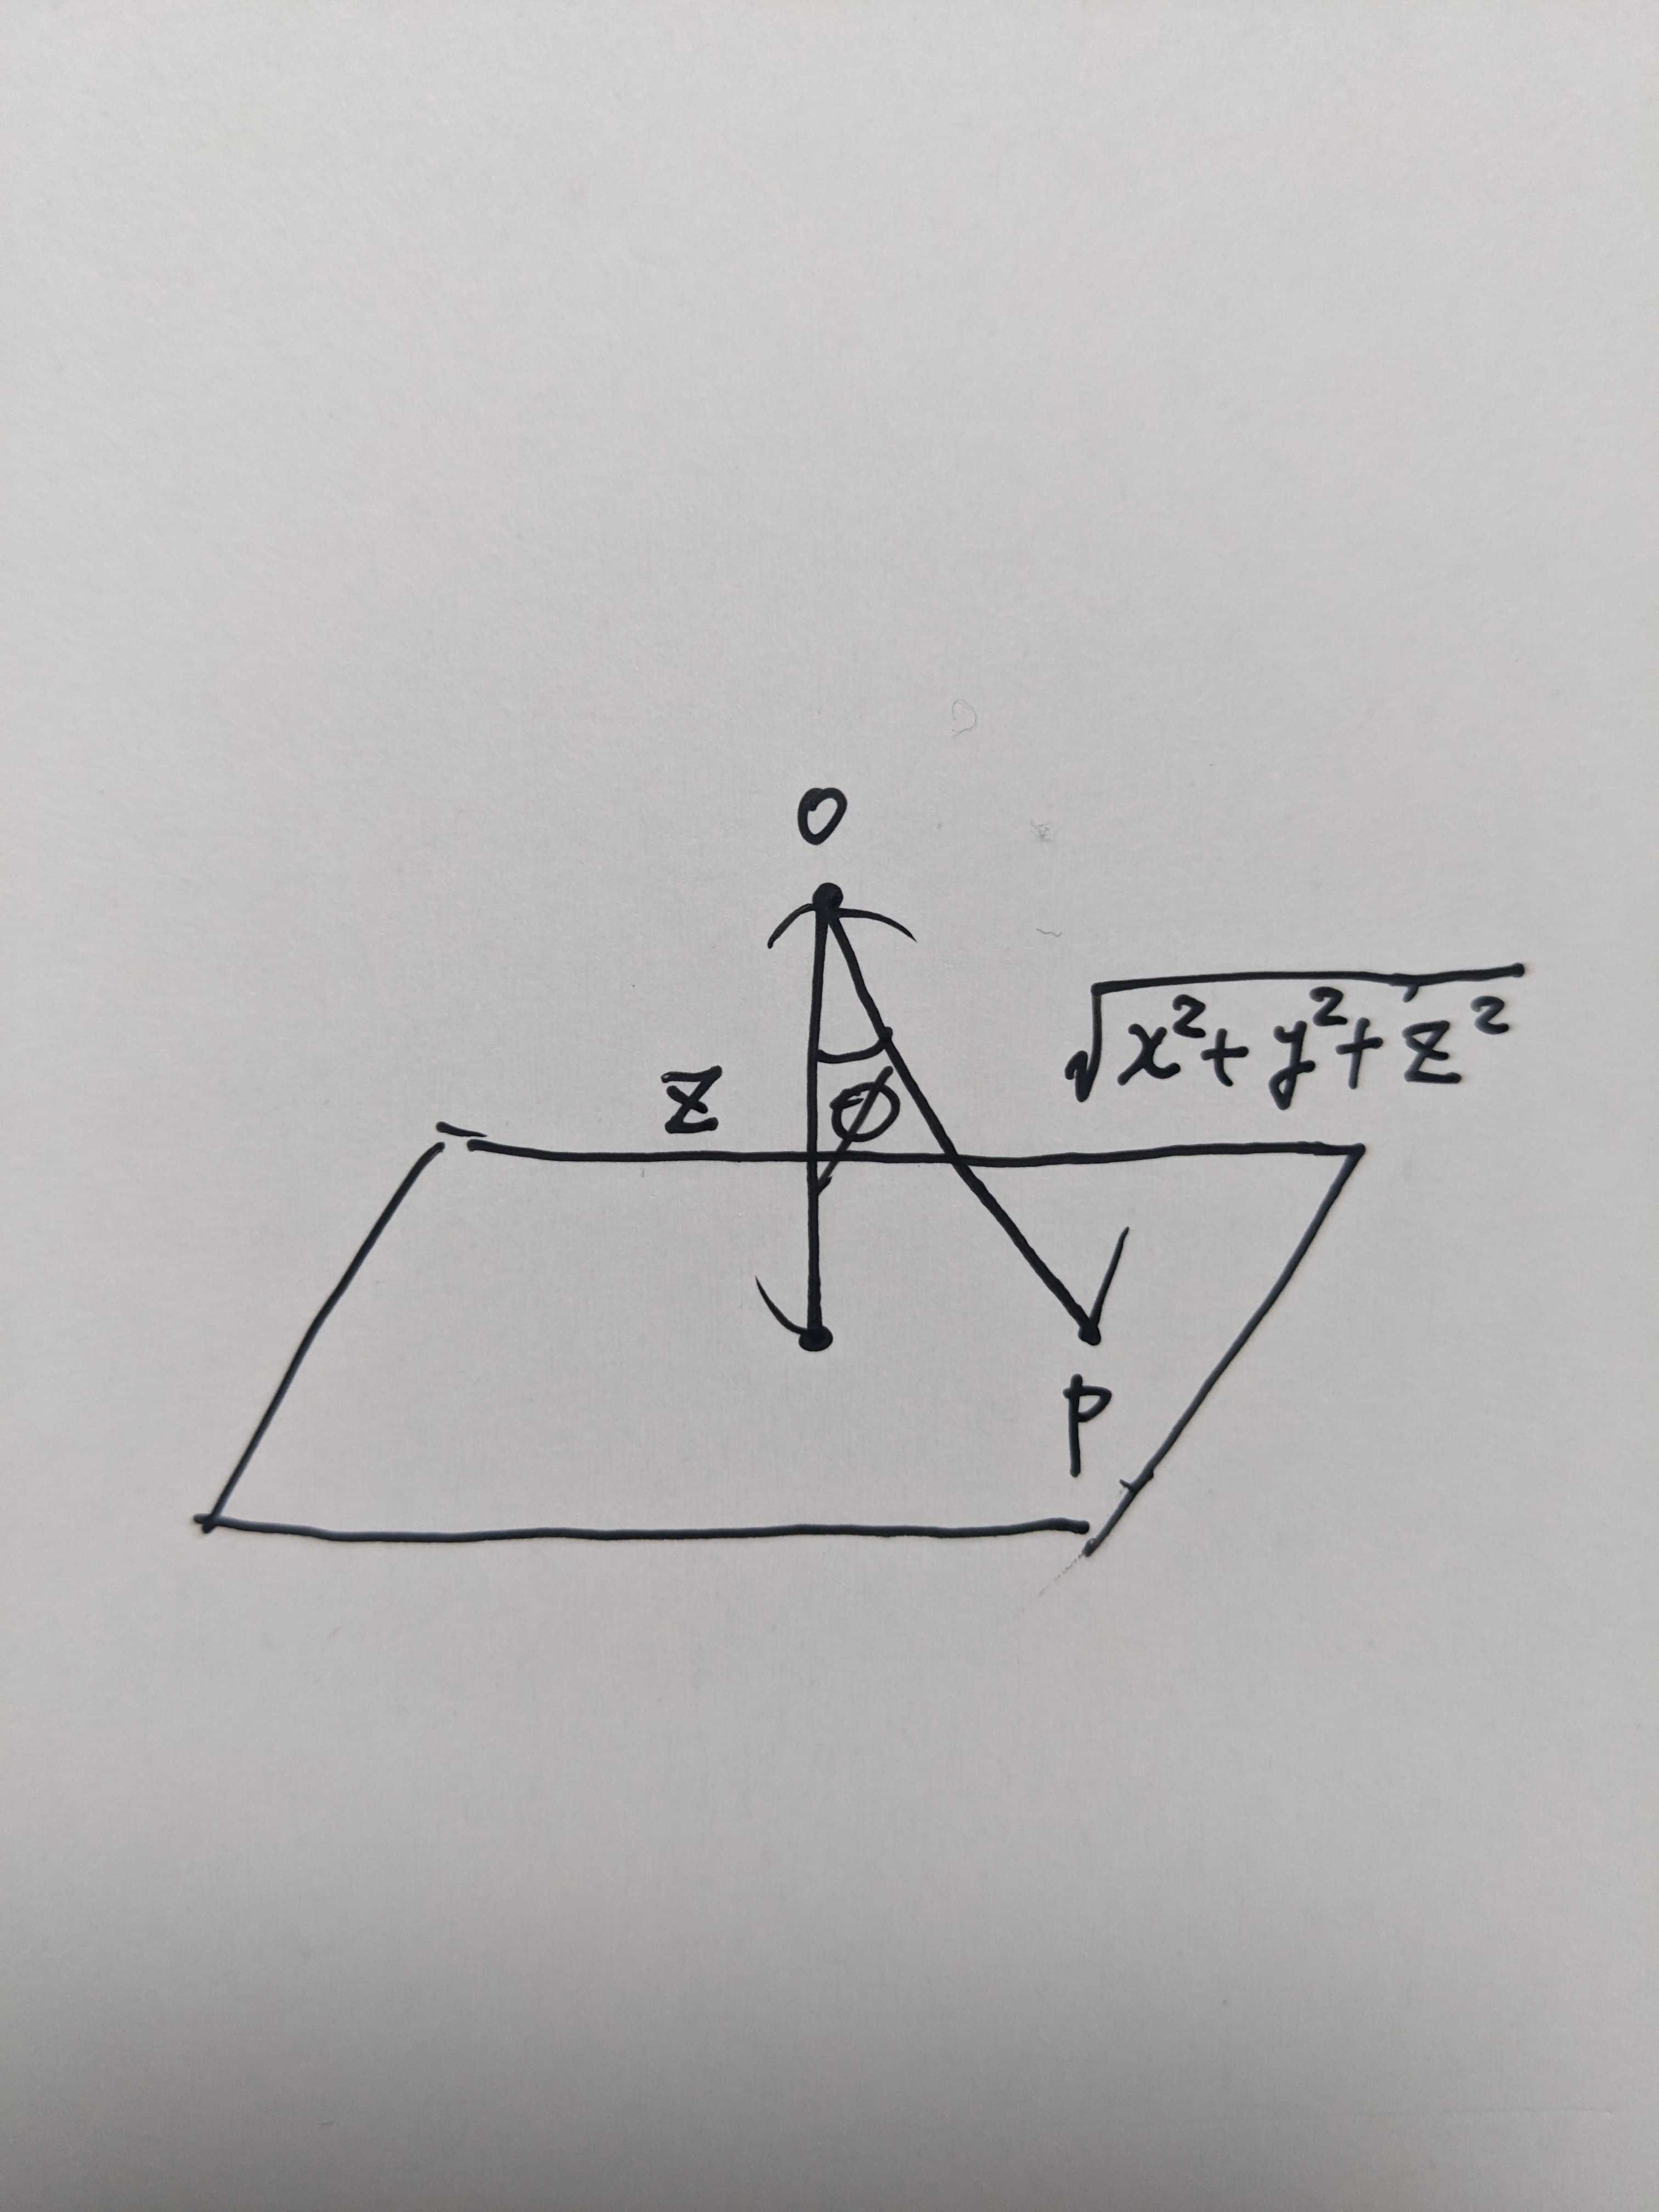 O
√x²+y²+z²
z
∅
P